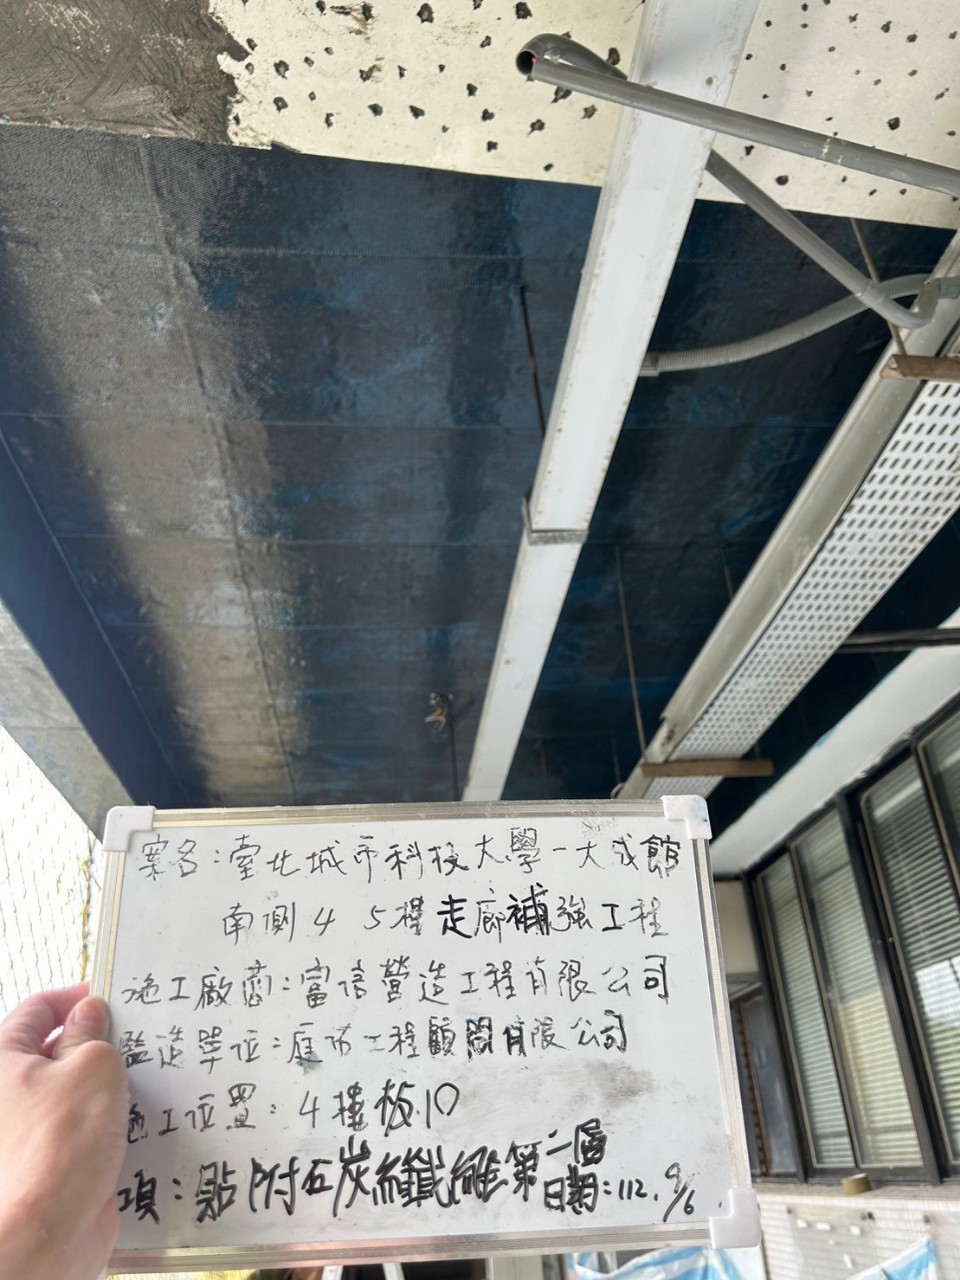 案名:臺北城市科技大學-大成館
南側4 5樓走廊補強工程
施工廠商:富信營造工程有限公司
監造單位:工程顧問有限公司
施工位置:4樓板10
項:貼附石炭纖維第二層
日期:112.9/6